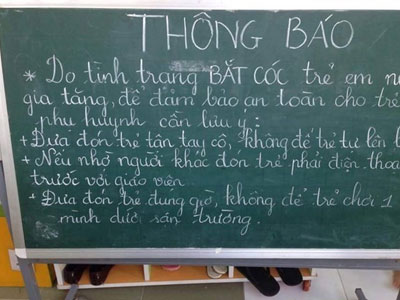 THÔNG BÁO
* Do tình trạng BẮT CÓC trẻ em
gia tăng, để đảm bảo an toàn cho trẻ
phụ huynh cần lưu ý:
+ Đưa đón trẻ tận tay cô, không để trẻ tự lên
+ Nếu nhờ người khác đón trẻ phải điện thoại
trước với giáo viên.
+ Đưa đón trẻ đúng giờ, không để trẻ chơi 1
mình dưới sân trường.